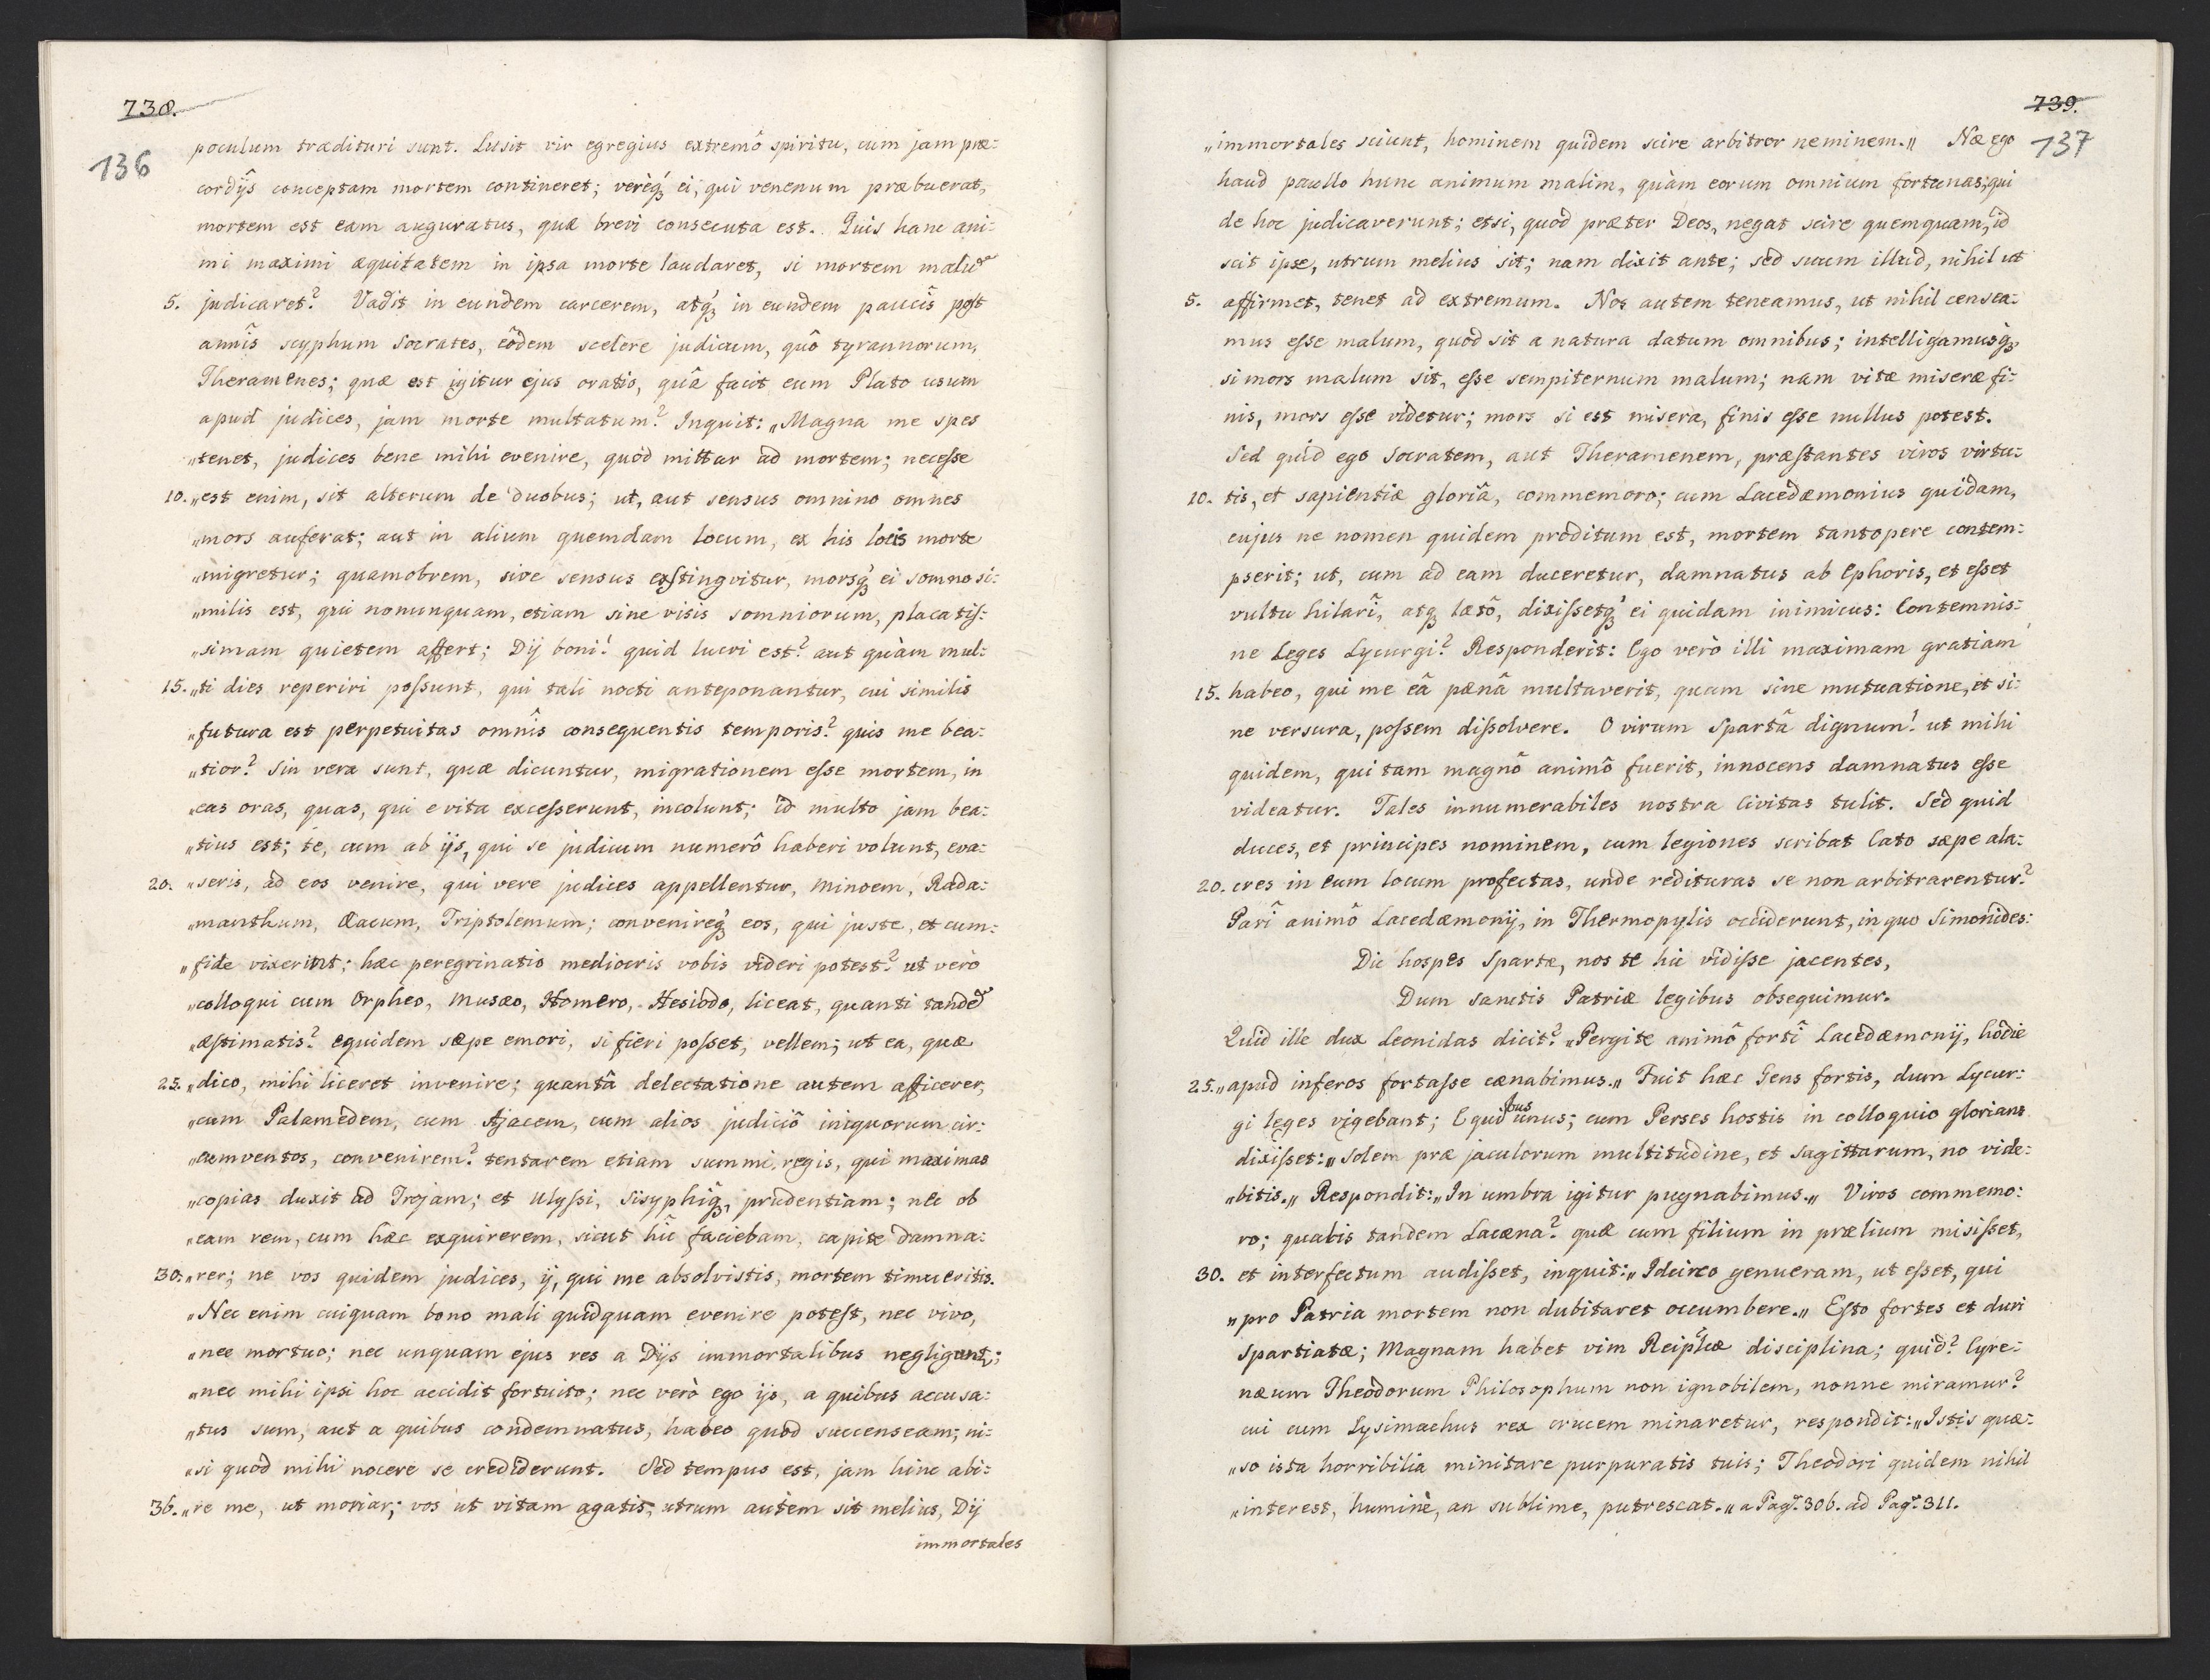 738.
136
poculum trædituri sunt. Lusit vir egregius extremô spiritu, cum jam præ:
cordÿs conceptam mortem contineret; verèqꝫ ei, qui venenum præbuerat,
mortem est eam auguratus, quæ brevi consecuta est. Quis hanc ani:
mi maximi æquitatem in ipsa morte laudaret, si mortem malũ
5. judicaret? Vadit in eundem carcerem, atqꝫ in eundem paucîs post
annîs scyphum Socrates, eôdem scelere judicum, quô tyrannorum,
Theramenes; quæ est igitur ejus oratio, quâ facit eum Plato usum
apud judices, jam morte multatum? Inquit: „Magna me spes
„tenet, judices bene mihi evenire, quòd mittar ad mortem; necesse
10. „est enim, sit alterum de duobus; ut, aut sensus omnino omnes
„mors auferat; aut in alium quemdam locum, ex his locis morte
„migretur; quamobrem, sive sensus exstingvitur, morsqꝫ ei somno si:
„milis est, qui nonunquam, etiam sine visis somniorum, placatis:
„simam quietem affert; Dÿ boni! quid lucri est? aut quàm mul:
15. „ti dies reperiri possunt, qui tali nocti anteponantur, cui similis
„futura est perpetuitas omnîs consequentis temporis? quis me bea:
„tior? Sin vera sunt, quæ dicuntur, migrationem esse mortem, in
„eas oras, quas, qui e vita excesserunt, incolunt; id multo jam bea:
„tius est; te, cum ab ÿs, qui se judicum numerô haberi volunt, eva:
20. „seris, ad eos venire, qui vere judices appellentur, Minoem, Rada:
„manthum, Æacum, Triptolemum; convenireqꝫ eos, qui juste, et cum:
„fide vixerint; hæc peregrinatio mediocris vobis videri potest? ut verò
„colloqui cum Orpheo, Musæo, Homero, Hesiodo, liceat, quanti tandẽ
„æstimatis? equidem sæpe emori, si fieri posset, vellem; ut ea, quæ
25. „dico, mihi liceret invenire; quantâ delectatione autem afficerer,
„cum Palamedem, cum Ajacem, cum alios judiciô iniquorum cir:
„cumventos, convenirem? tentarem etiam summi regis, qui maximas
„copias duxit ad Trojam; et Ulyssi, Sisyphiqꝫ, prudentiam; nec ob
„eam rem, cum hæc exquirerem, sicut hîc faciebam, capite damna:
30. „rer; ne vos quidem judices, ÿ, qui me absolvistis, mortem timueritis.
„Nec enim cuiquam bono mali quidquam evenire potest, nec vivo,
„nec mortuo; nec unquam ejus res a Dÿs immortalibus negligent;
„nec mihi ipsi hoc accidit fortuito; nec verò ego ÿs, a quibus accusa:
„tus sum, aut a quibus condemnatus, habeo quod succenseam; ni:
„si quòd mihi nocere se crediderunt. Sed tempus est, jam hinc abi:
36. „re me, ut moriar; vos ut vitam agatis; utrum autem sit melius, Dÿ
immortales
739.
137
„immortales sciunt, hominem quidem scire arbitror neminem.„ Næ ego
haud paullo hunc animum malim, quàm eorum omnium fortunas; qui
de hoc judicaverunt; etsi, quod præter Deos, negat scire quemquam, id
scit ipse, utrum melius sit; nam dixit ante; sed suum illud, nihil ut
5. affirmet, tenet ad extremum. Nos autem teneamus, ut nihil censea:
mus esse malum, quod sit a natura datum omnibus; intelligamusqꝫ
si mors malum sit, esse sempiternum malum; nam vitæ miseræ fi:
nis, mors esse videtur; mors si est misera, finis esse nullus potest.
Sed quid ego Socratem, aut Theramenem, præstantes viros virtu:
10. tis, et sapientiæ gloriâ, commemoro; cum Lacedæmonius quidam,
cujus ne nomen quidem proditum est, mortem tantopere contem:
pserit; ut, cum ad eam duceretur, damnatus ab Ephoris, et esset
vultu hilarî, atqꝫ lætô, dixissetqꝫ ei quidam inimicus: Contemnis:
ne Leges Lycurgi? Responderit: Ego verò illi maximam gratiam
15. habeo, qui me eâ pænâ multaverit, quam sine mutuatione, et si:
ne versura, possem dissolvere. O virum Spartâ dignum! ut mihi
quidem, qui tam magnô animô fuerit, innocens damnatus esse
videatur. Tales innumerabiles nostra Civitas tulit. Sed quid
duces, et principes nominem, cum legiones scribat Cato sæpe ala:
20. cres in eum locum profectas, unde redituras se non arbitrarentur?
Parî animô Lacedæmonÿ, in Thermopylis occiderunt, in quo Simonides:
Dic hospes Spartæ, nos te hic vidisse jacentes,
Dum sanctis Patriæ legibus obsequimur.
Quid ille dux Leonidas dicit? „Pergite animô fortî Lacedæmonÿ, hodie
25. „apud inferos fortasse cænabimus.„ Fuit hæc Gens fortis, dum Lycur:
gi leges vigebant; Equibus unus; cum Perses hostis in colloquio glorians
dixisset: „Solem præ jaculorum multitudine, et sagittarum, no vide:
„bitis.„ Respondit: „In umbra igitur pugnabimus.„ Viros commemo:
ro; qualis tandem Lacæna? quæ cum filium in prælium misisset,
30. et interfectum audisset, inquit: „Idcirco genueram, ut esset, qui
„pro Patria mortem non dubitaret occumbere.„ Esto fortes et duri
Spartiatæ; Magnam habet vim Reiplcæ disciplina; quid? Cyre:
næum Theodorum Philosophum non ignobilem, nonne miramur?
cui cum Lysimachus rex crucem minaretur, respondit: „Istis quæ:
„so ista horribilia minitare purpuratis tuis; Theodori quidem nihil
„interest, huminè, an sublime, putrescat.„ a Pag. 306. ad Pag. 311.